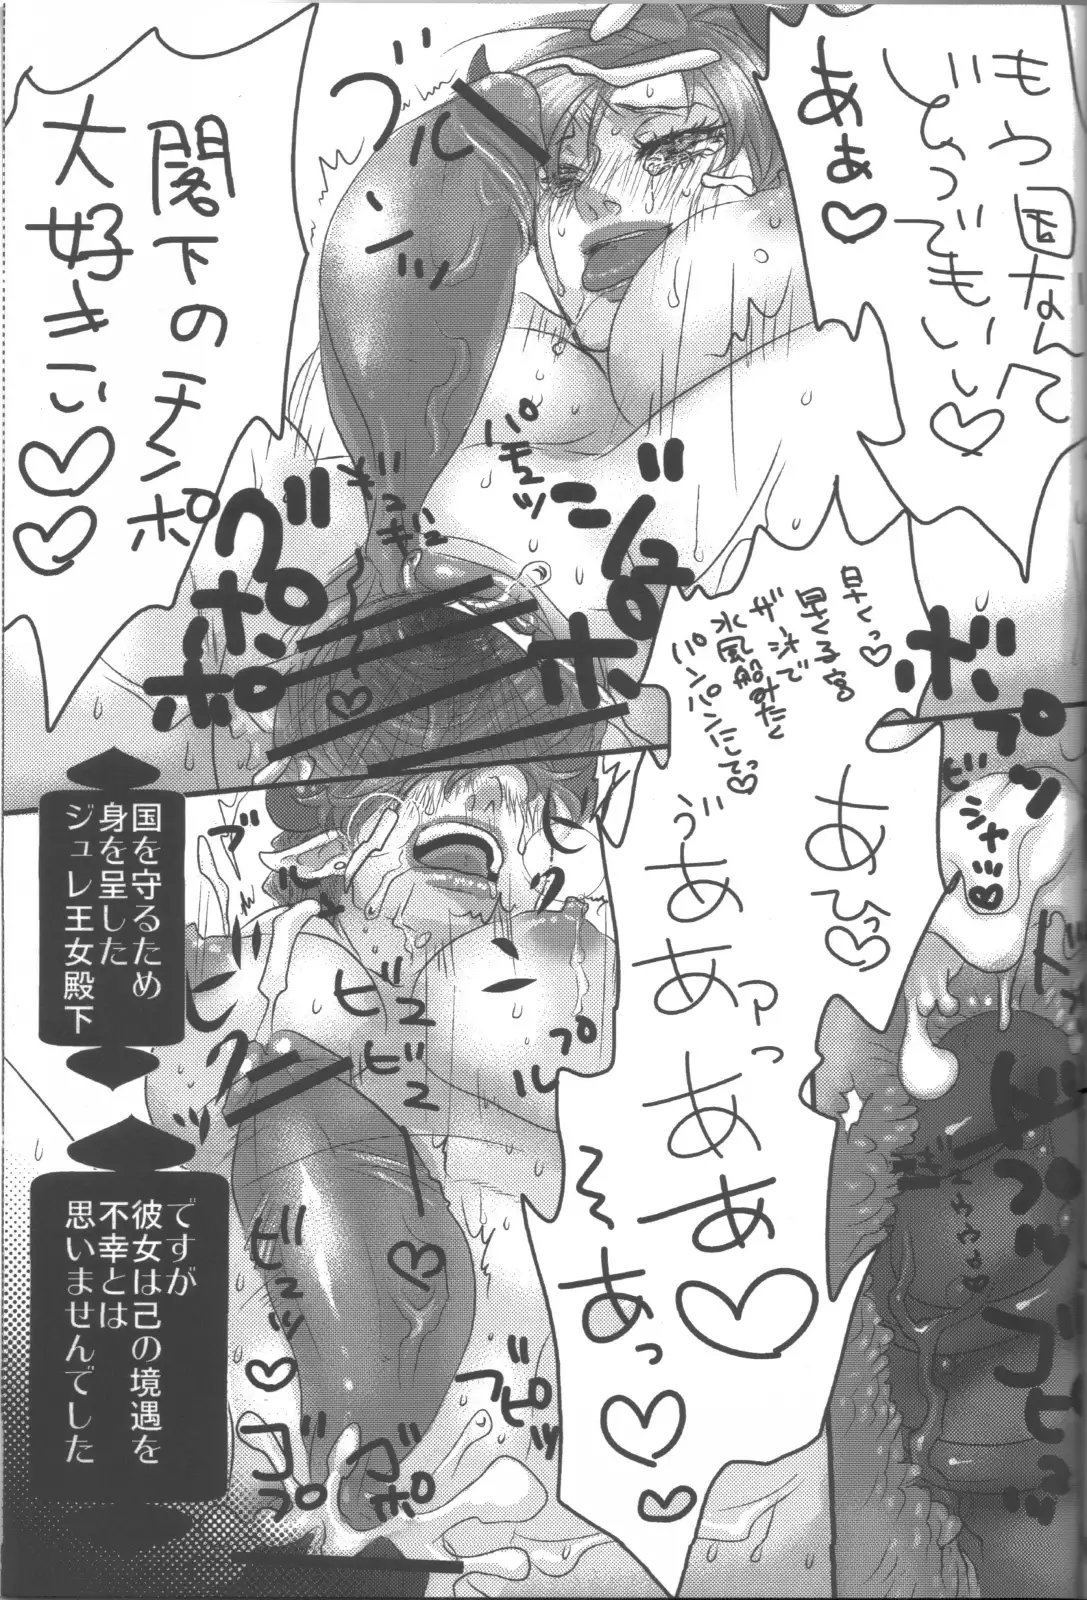 もう国なんて
いいっでもいい♡
あぁ♡
閣下のチンポ
大好きい♡♡
ブルン
パキュッ
ギュッ
ギュ
ブボボ
ボボ
早くっ♡
早く子宮
ザー汁で
水風船みたく
パンパンにしてっ♡
あひっ♡
うああぁっああ♡
あっ♡♡
ビシャッ♡
国を守るため
身を呈した
ジュレ王女殿下
ブルン
ビュビュ
プルン
ビュッ
ブピッ
ゴプ
ゴポ
ですが
彼女は己の境遇を
不幸とは
思いませんでした